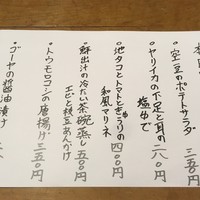 ・空豆のポテトサラダ 三五〇円
・ヤリイカの下足と耳の
塩ゆで 二八〇円
・地タコとトマトときゅうりの
和風マリネ 四〇〇円
・鮮出汁の冷たい茶碗蒸し 五〇〇円
エビと枝豆あんかけ
・トウモロコシの唐揚げ 三五〇円
・ゴーヤの醤油漬け